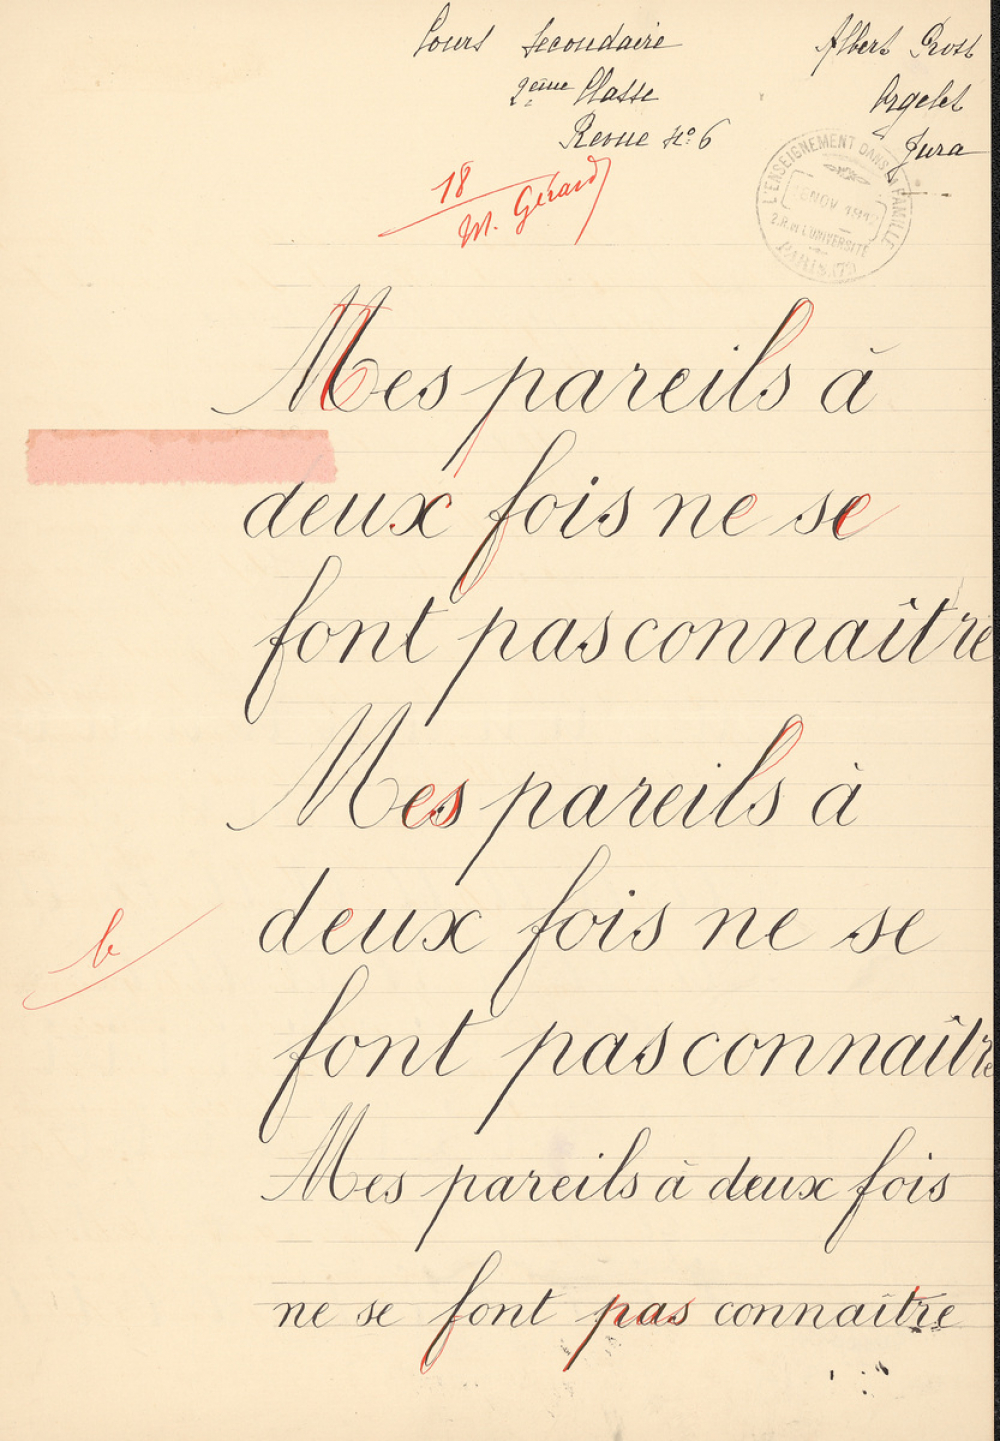 Cours Secondaire
2ème Classe
Revue No: 6
Albert Prost
Orgelet
Jura
18
M. Gérard
L'ENSEIGNEMENT DANS LA FAMILLE
16 NOV 1912
2.R. DE L'UNIVERSITÉ
PARIS (7e)
Mes pareils à
deux fois ne se
font pas connaître
Mes pareils à
b
deux fois ne se
font pas connaître
Mes pareils à deux fois
ne se font pas connaître